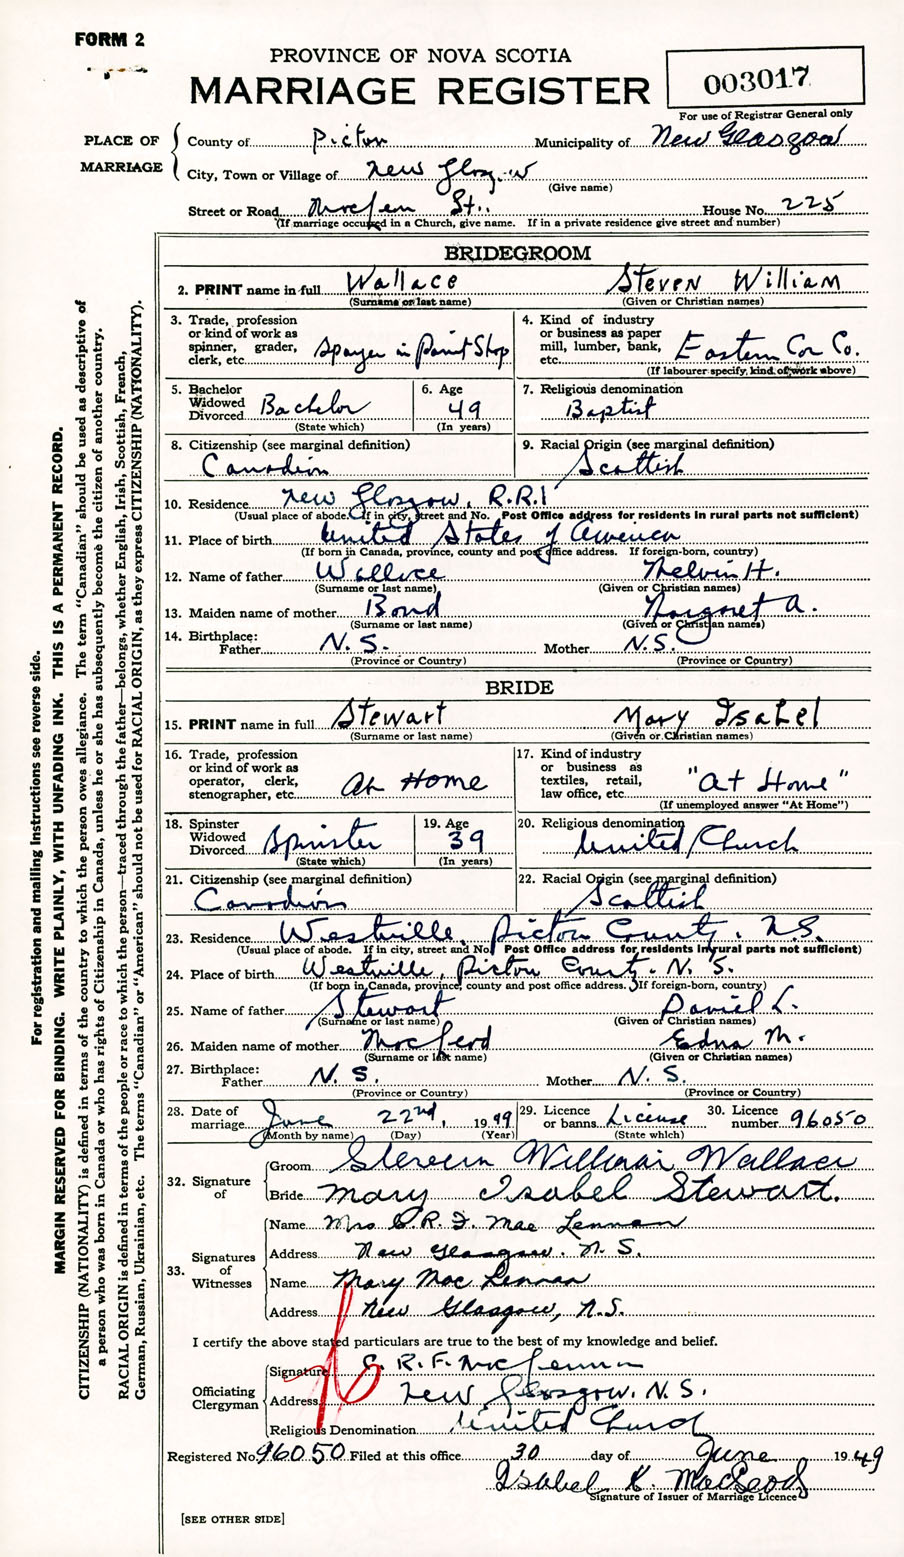 FORM 2
PROVINCE OF NOVA SCOTIA
MARRIAGE REGISTER
003017
For use of Registrar General only
PLACE OF MARRIAGE
County of Pictou Municipality of New Glasgow
City, Town or Village of New Glasgow
(Give name)
Street or Road St. House No. 225
(If marriage occured in a Church, give name. If in a private residence give street and number)
BRIDEGROOM
2. PRINT name in full Wallace Steven William
(Surname or last name) (Given or Christian names)
3. Trade, profession or kind of work as spinner, grader, clerk, etc. Sprayer in Paint Shop
4. Kind of industry or business as paper mill, lumber, bank, etc. Eastern Car Co.
(If labourer specify kind of work above)
5. Bachelor Widowed Divorced Bachelor
(State which)
6. Age 49
(In years)
7. Religious denomination
Baptist
8. Citizenship (see marginal definition)
Canadian
9. Racial Origin (see marginal definition)
Scottish
10. Residence New Glasgow, R.R.1
(Usual place of abode. If in city, street and No. Post Office address for residents in rural parts not sufficient)
11. Place of birth United States of America
(If born in Canada, province, county and post office address. If foreign-born, country)
12. Name of father Wallace Melvin H.
(Surname or last name) (Given or Christian names)
13. Maiden name of mother Bond Margaret A.
(Surname or last name) (Given or Christian names)
14. Birthplace:
Father N.S. Mother N.S.
(Province or Country) (Province or Country)
BRIDE
15. PRINT name in full Stewart Mary Isabel
(Surname or last name) (Given or Christian names)
16. Trade, profession or kind of work as operator, clerk, stenographer, etc. At Home
17. Kind of industry or business as textiles, retail, law office, etc. "At Home"
(If unemployed answer "At Home")
18. Spinster Widowed Divorced Spinster
(State which)
19. Age 39
(In years)
20. Religious denomination
United Church
21. Citizenship (see marginal definition)
Canadian
22. Racial Origin (see marginal definition)
Scottish
23. Residence Westville, Pictou County. N.S.
(Usual place of abode. If in city, street and No. Post Office address for residents in rural parts not sufficient)
24. Place of birth Westville, Pictou County. N.S.
(If born in Canada, province, county and post office address. If foreign-born, country)
25. Name of father Stewart Daniel L.
(Surname or last name) (Given or Christian names)
26. Maiden name of mother MacLeod Edna M.
(Surname or last name) (Given or Christian names)
27. Birthplace:
Father N.S. Mother N.S.
(Province or Country) (Province or Country)
28. Date of marriage June 22nd, 1949
(Month by name) (Day) (Year)
29. Licence or banns License
(State which)
30. Licence number 96050
32. Signature of
Groom Steven William Wallace
Bride Mary Isabel Stewart.
33. Signatures of Witnesses
Name Mrs C.R.F. MacLennan
Address New Glasgow. N.S.
Name Mary MacLennan
Address New Glasgow, N.S.
I certify the above stated particulars are true to the best of my knowledge and belief.
Officiating Clergyman
Signature C. R. F. MacLennan
Address New Glasgow. N.S.
Religious Denomination United Church
Registered No. 96050 Filed at this office 30 day of June 1949
Isabel K. MacLeod
Signature of Issuer of Marriage Licence
[SEE OTHER SIDE]
For registration and mailing instructions see reverse side.
MARGIN RESERVED FOR BINDING. WRITE PLAINLY, WITH UNFADING INK. THIS IS A PERMANENT RECORD.
CITIZENSHIP (NATIONALITY) is defined in terms of the country to which the person owes allegiance. The term "Canadian" should be used as descriptive of
a person who was born in Canada or who has rights of Citizenship in Canada, unless he or she has subsequently become the citizen of another country.
RACIAL ORIGIN is defined in terms of the people or race to which the person—traced through the father—belongs, whether English, Irish, Scottish, French,
German, Russian, Ukrainian, etc. The terms "Canadian" or "American" should not be used for RACIAL ORIGIN, as they express CITIZENSHIP (NATIONALITY).